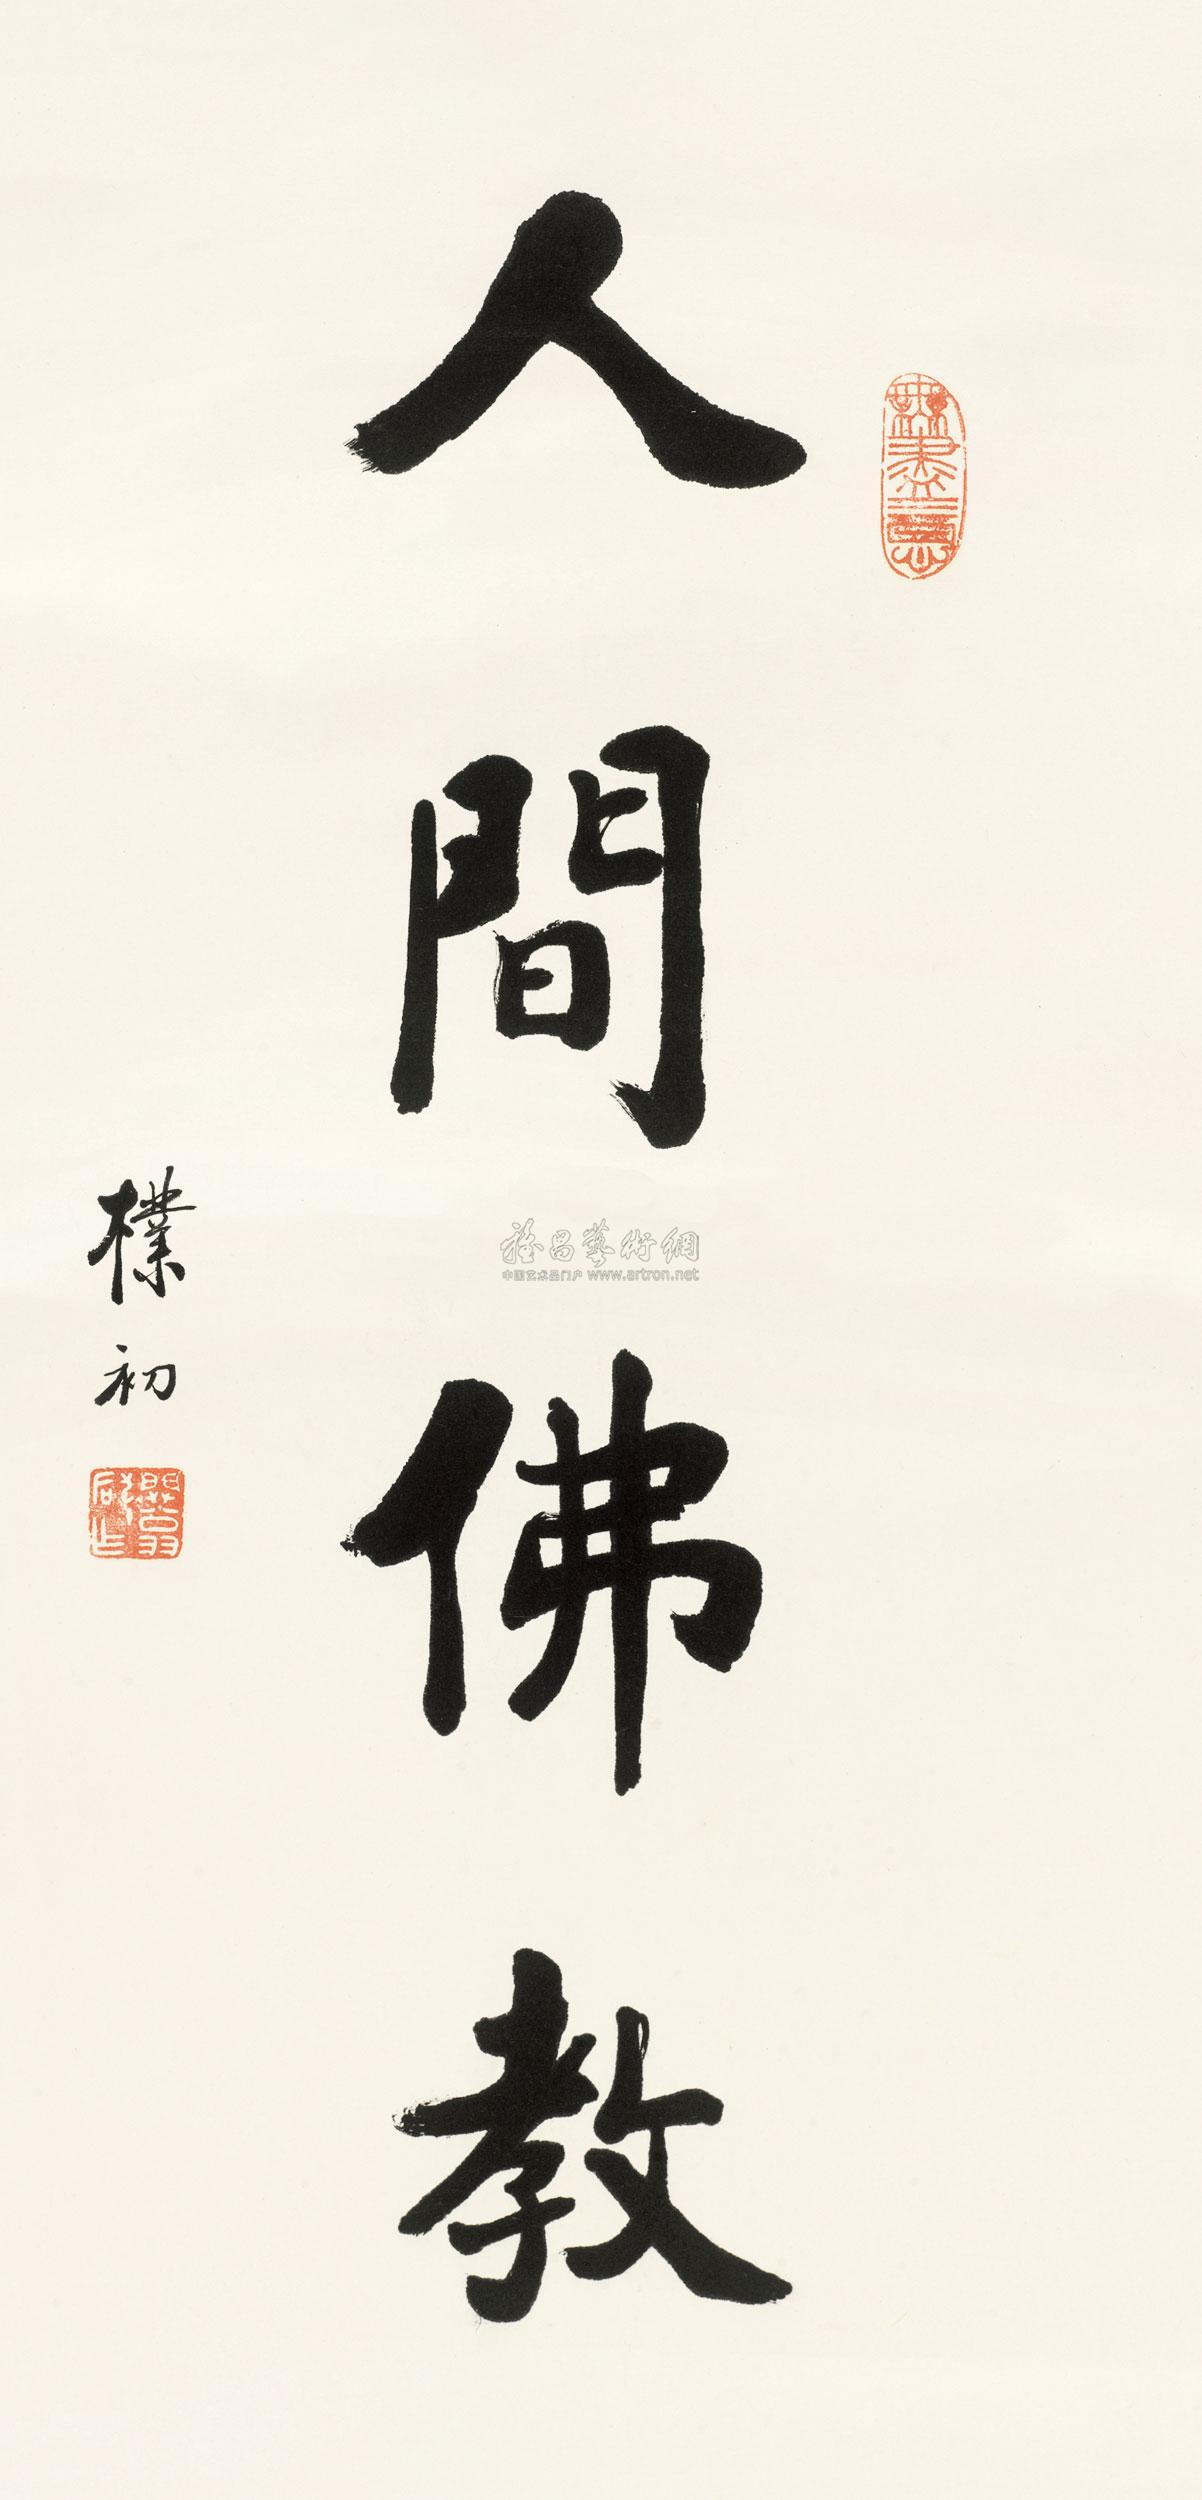 人間佛教
樸初
雅昌藝術網
中国艺术品门户 www.artron.net